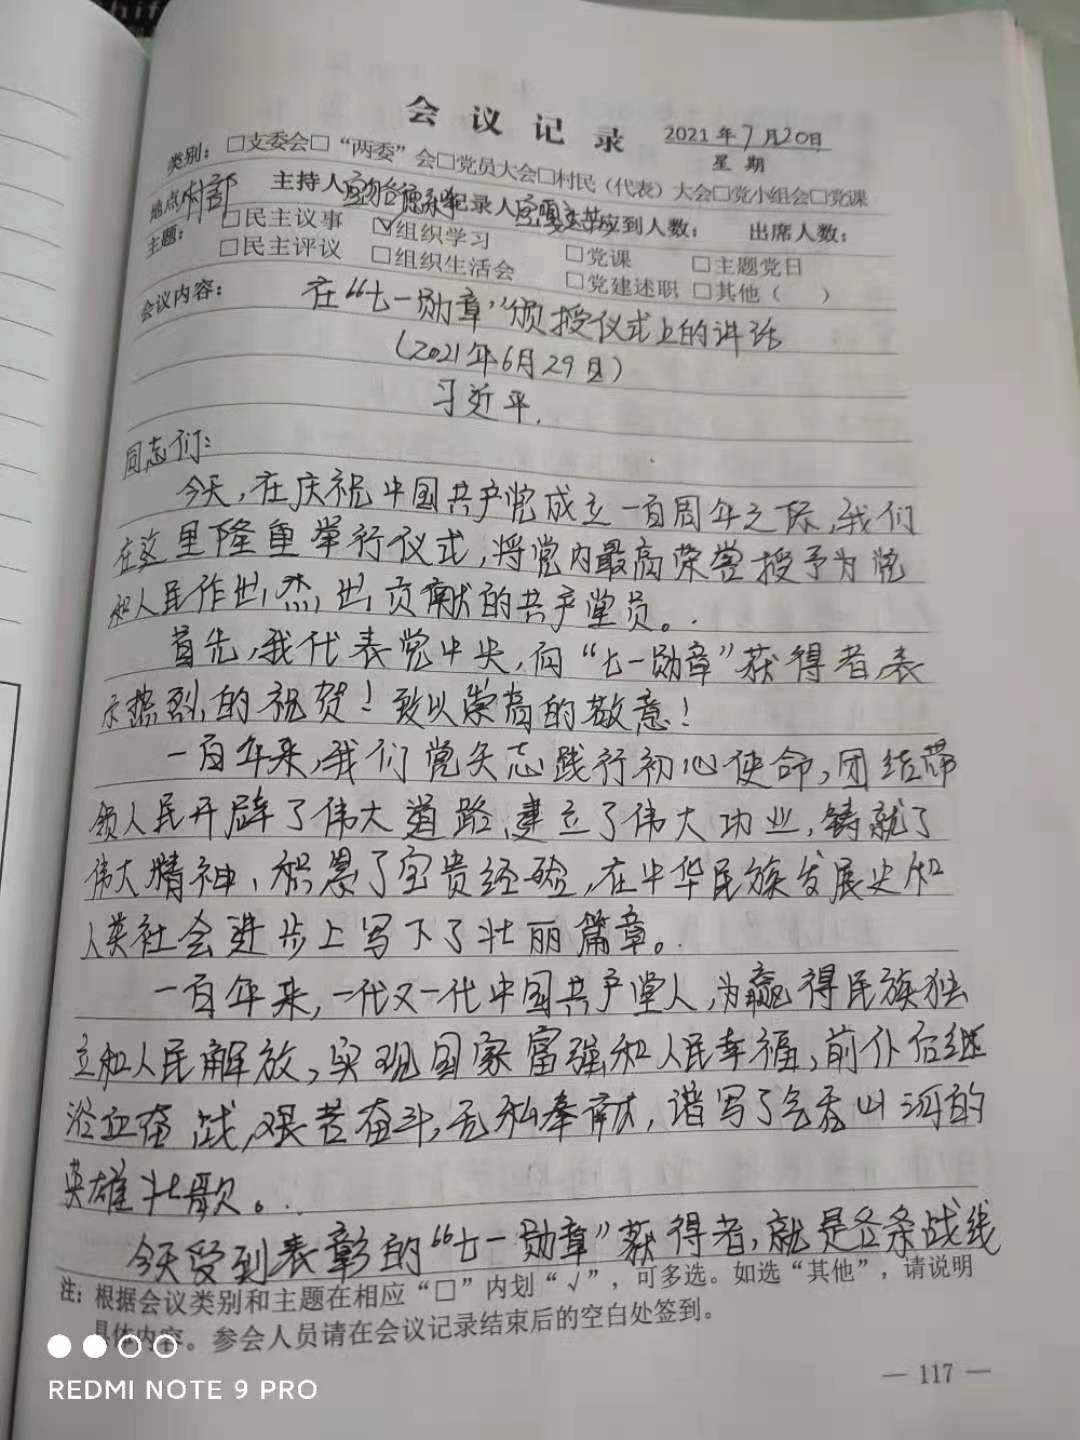 会议记录 2021年7月20日
星期
类别：□支委会□“两委”会□党员大会□村民（代表）大会□党小组会□党课
地点村部 主持人 记录人 应到人数： 出席人数：
主题： □民主议事 ☑组织学习 □党课 □主题党日
□民主评议 □组织生活会 □党建述职 □其他（ ）
会议内容： 在“七一勋章”颁授仪式上的讲话
（2021年6月29日）
习近平.
同志们：
今天，在庆祝中国共产党成立一百周年之际，我们
在这里隆重举行仪式，将党内最高荣誉授予为党
和人民作出杰出贡献的共产党员。
首先，我代表党中央，向“七一勋章”获得者，表
示热烈的祝贺！致以崇高的敬意！
一百年来，我们党矢志践行初心使命，团结带
领人民开辟了伟大道路，建立了伟大功业，铸就了
伟大精神，积累了宝贵经验，在中华民族发展史和
人类社会进步上写下了壮丽篇章。
一百年来，一代又一代中国共产党人，为赢得民族独
立和人民解放，实现国家富强和人民幸福，前仆后继
浴血奋战，艰苦奋斗，无私奉献，谱写了气吞山河的
英雄壮歌。
今天受到表彰的“七一勋章”获得者，就是各条战线
注：根据会议类别和主题在相应“□”内划“√”，可多选。如选“其他”，请说明
具体内容。参会人员请在会议记录结束后的空白处签到。
REDMI NOTE 9 PRO
— 117 —